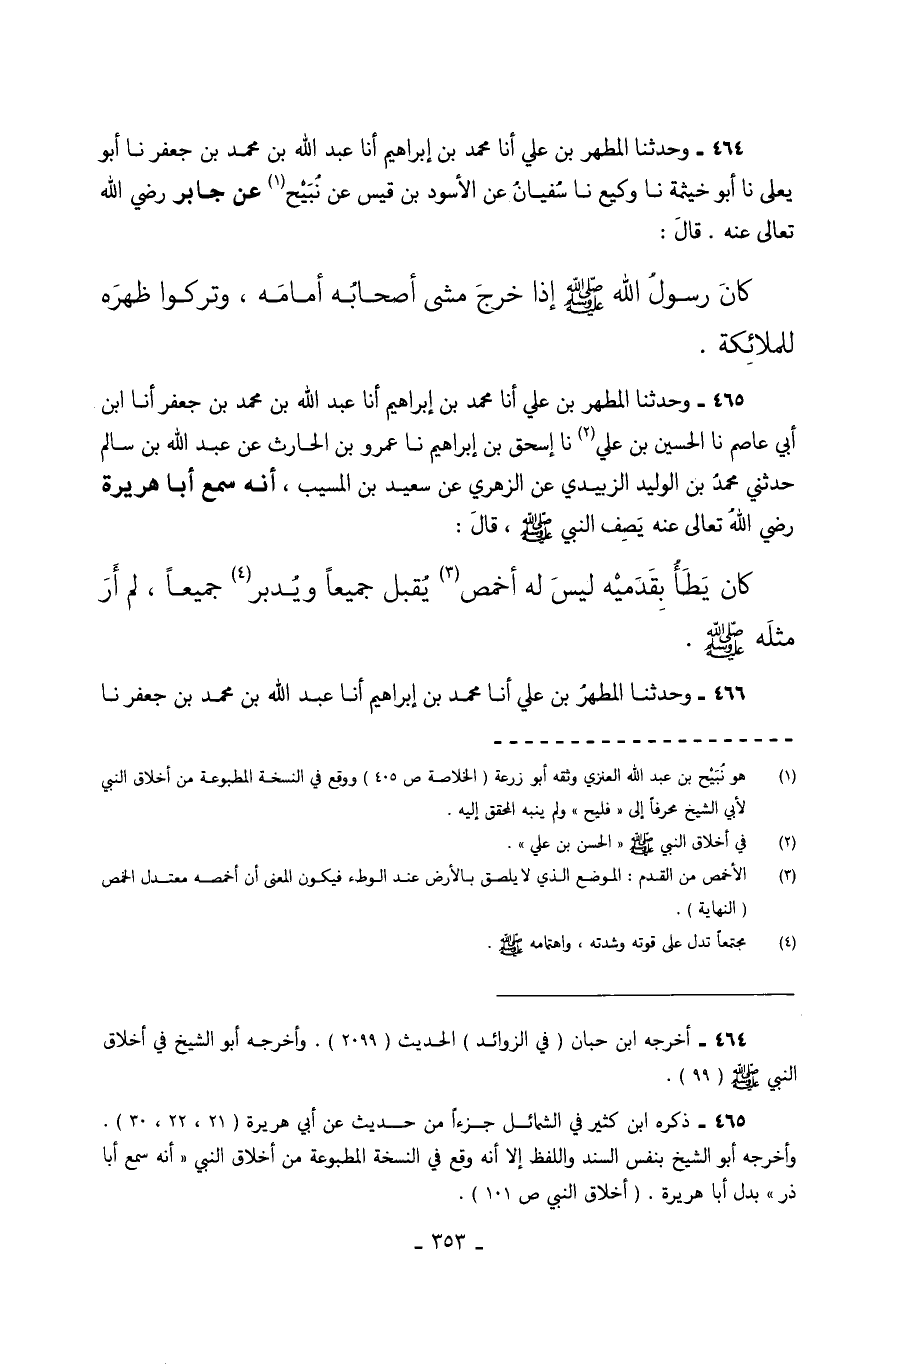 ٤٦٤ ـ وحدثنا المطهر بن علي أنا محمد بن إبراهيم أنا عبد الله بن محمد بن جعفر نا أبو
يعلى نا أبو خيثمة نا وكيع نا سُفيانُ عن الأسود بن قيس عن نُبَيْح(١) عن جابر رضي الله
تعالى عنه . قالَ :
كانَ رسولُ الله ﷺ إذا خرجَ مشى أصحابُه أمامَه ، وتركوا ظهرَه
للملائِكة .
٤٦٥ ـ وحدثنا المطهر بن علي أنا محمد بن إبراهيم أنا عبد الله بن محمد بن جعفر أنا ابن
أبي عاصم نا الحسين بن علي(٢) نا إسحق بن إبراهيم نا عمرو بن الحارث عن عبد الله بن سالم
حدثني محمدُ بن الوليد الزبيدي عن الزهري عن سعيد بن المسيب ، أنه سمع أبا هريرة
رضي اللهُ تعالى عنه يَصِف النبي ﷺ ، قالَ :
كان يَطَأُ بِقَدَميْه ليسَ له أخمص(٣) يُقبل جميعاً ويُدبر(٤) جميعاً ، لم أَرَ
مثلَه ﷺ .
٤٦٦ ـ وحدثنا المطهرُ بن علي أنا محمد بن إبراهيم أنا عبد الله بن محمد بن جعفر نا
(١) هو نُبَيْح بن عبد الله العنزي وثقه أبو زرعة ( الخلاصة ص ٤٠٥ ) ووقع في النسخة المطبوعة من أخلاق النبي
لأبي الشيخ محرفاً إلى « فليح » ولم ينبه المحقق إليه .
(٢) في أخلاق النبي ﷺ « الحسن بن علي » .
(٣) الأخمص من القدم : الموضع الذي لا يلصق بالأرض عند الوطء فيكون المعنى أن أخمصه معتدل الخمص
( النهاية ) .
(٤) مجتمعاً تدل على قوته وشدته ، واهتمامه ﷺ .
٤٦٤ ـ أخرجه ابن حبان ( في الزوائد ) الحديث ( ٢٠٩٩ ) . وأخرجه أبو الشيخ في أخلاق
النبي ﷺ ( ٩٩ ) .
٤٦٥ ـ ذكره ابن كثير في الشمائل جزءاً من حديث عن أبي هريرة ( ٢١ ، ٢٢ ، ٣٠ ) .
وأخرجه أبو الشيخ بنفس السند واللفظ إلا أنه وقع في النسخة المطبوعة من أخلاق النبي « أنه سمع أبا
ذر » بدل أبا هريرة . ( أخلاق النبي ص ١٠١ ) .
ـ ٣٥٣ ـ